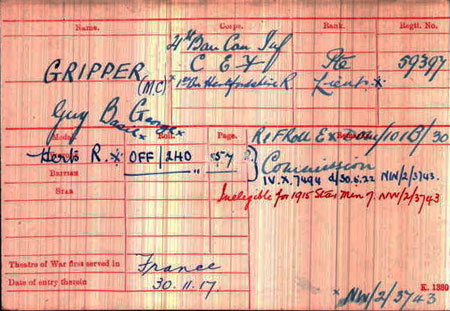 Name. Corps. Rank. Regtl. No.
4th Ban Can Inf
GRIPPER (MC) x C E F Pte 59397
1st Bn Hertfordshire R. Lieut. x
Guy B. George x
Basil x
Medal. Roll. Page.
Herts R. x OFF/240 57
British " "
Star
Commission
IV.X.7494 d/30.6.22 NW/2/3743.
Ineligible for 1915 Star Men 7. NW/2/3743
Theatre of War first served in France
Date of entry therein 30.11.17
K. 1380
x NW/2/3743